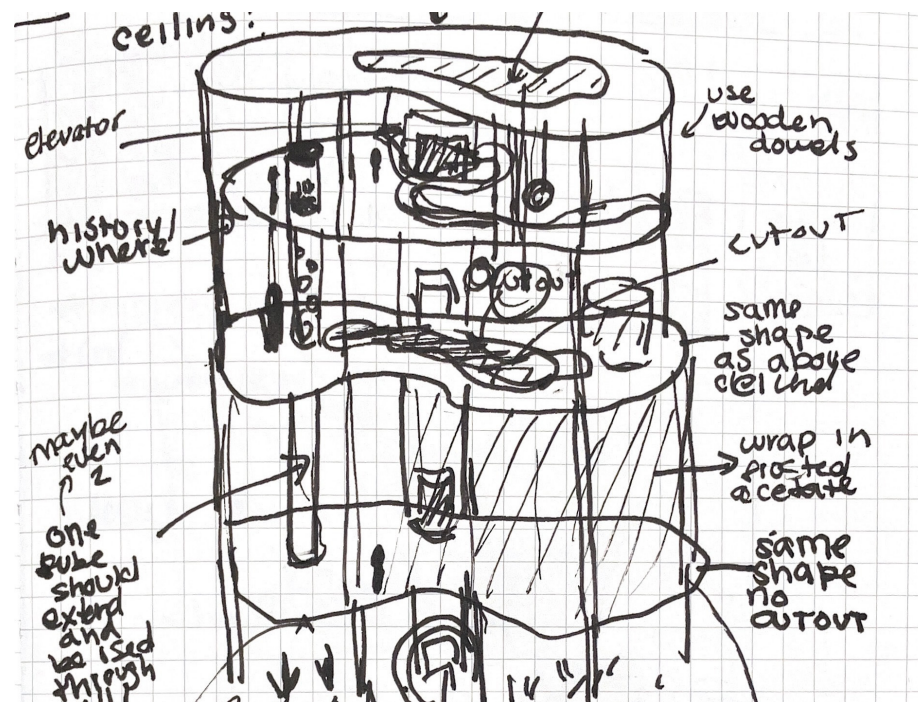 ceiling:
elevator
use
wooden
dowels
history/
where
cutout
cutout
same
shape
as above
ceiling
maybe
even
2
wrap in
frosted
acetate
one
tube
should
extend
and
be
through
same
shape
no
cutout